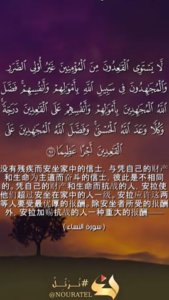 لَّا يَسْتَوِى ٱلْقَٰعِدُونَ مِنَ ٱلْمُؤْمِنِينَ غَيْرُ أُو۟لِى ٱلضَّرَرِ
وَٱلْمُجَٰهِدُونَ فِى سَبِيلِ ٱللَّهِ بِأَمْوَٰلِهِمْ وَأَنفُسِهِمْ فَضَّلَ
ٱللَّهُ ٱلْمُجَٰهِدِينَ بِأَمْوَٰلِهِمْ وَأَنفُسِهِمْ عَلَى ٱلْقَٰعِدِينَ دَرَجَةً
وَكُلًّا وَعَدَ ٱللَّهُ ٱلْحُسْنَىٰ وَفَضَّلَ ٱللَّهُ ٱلْمُجَٰهِدِينَ عَلَى
ٱلْقَٰعِدِينَ أَجْرًا عَظِيمًا ٩٥
没有残疾而安坐家中的信士,与凭自己的财产
和生命为主道而奋斗的信士,彼此是不相同
的。凭自己的财产和生命而抗战的人,安拉使
他们超过安坐在家中的人一级。安拉应许这两
等人要受最优厚的报酬,除安坐者所受的报酬
外,安拉加赐抗战的人一种重大的报酬
(سورة النساء)
@NOURATEL